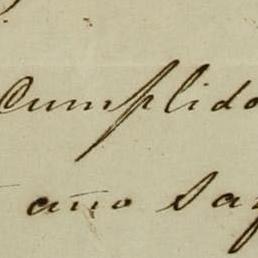 Cumplido
año